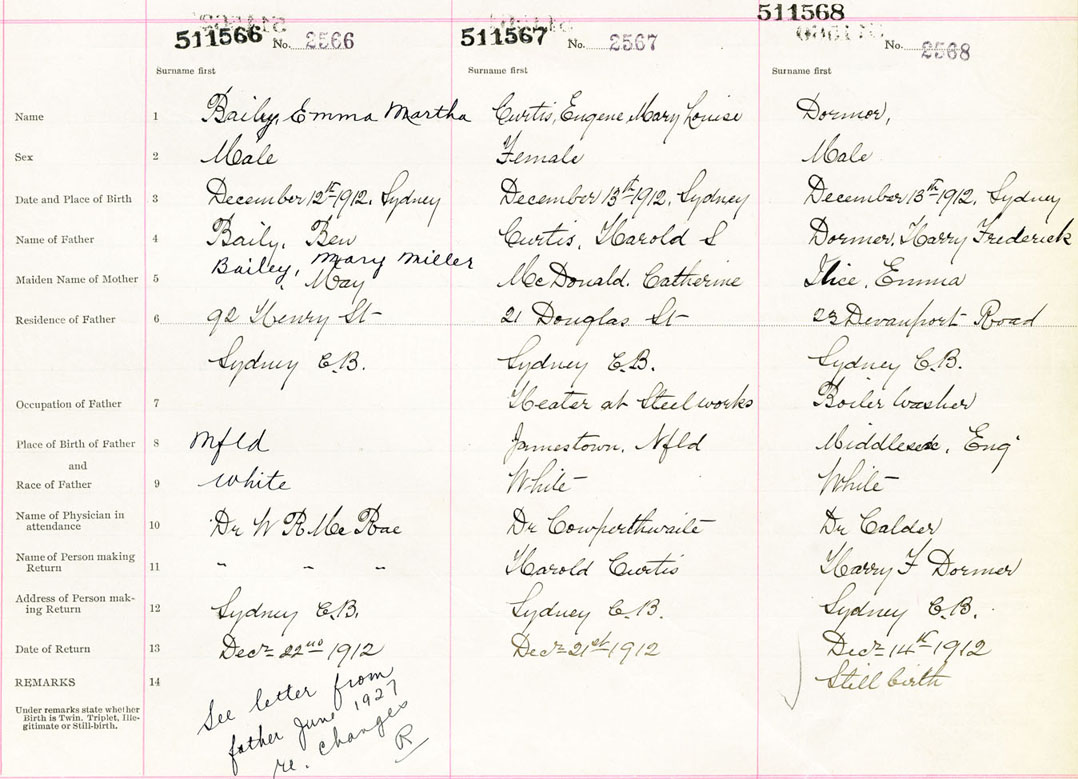 511566 No. 2566 511567 No. 2567 511568 No. 2568
Surname first Surname first Surname first
Name 1 Baily, Emma Martha Curtis, Eugene Mary Louise Dormer,
Sex 2 Male Female Male
Date and Place of Birth 3 December 12th 1912. Sydney December 13th 1912, Sydney December 13th 1912, Sydney
Name of Father 4 Baily, Ben Curtis, Harold S Dormer, Harry Frederick
Bailey, Mary Miller
Maiden Name of Mother 5 May McDonald. Catherine Emma
Residence of Father 6 92 Henry St 21 Douglas St 23 Devanport Road
Sydney C.B. Sydney C.B. Sydney C.B.
Occupation of Father 7 Heater at Steelworks Boiler Washer
Place of Birth of Father 8 Nfld Jamestown, Nfld Middlesex, Eng
and
Race of Father 9 White White White
Name of Physician in
attendance 10 Dr W R McRae Dr Cowperthwaite Dr Calder
Name of Person making
Return 11 " " " Harold Curtis Harry F Dormer
Address of Person mak-
ing Return 12 Sydney C.B. Sydney C.B. Sydney C.B.
Date of Return 13 Decr 22nd 1912 Decr 21st 1912 Decr 14th 1912
REMARKS 14 Still birth
Under remarks state whether
Birth is Twin. Triplet, Ille-
gitimate or Still-birth.
See letter from
father June 1927
re. changes
R